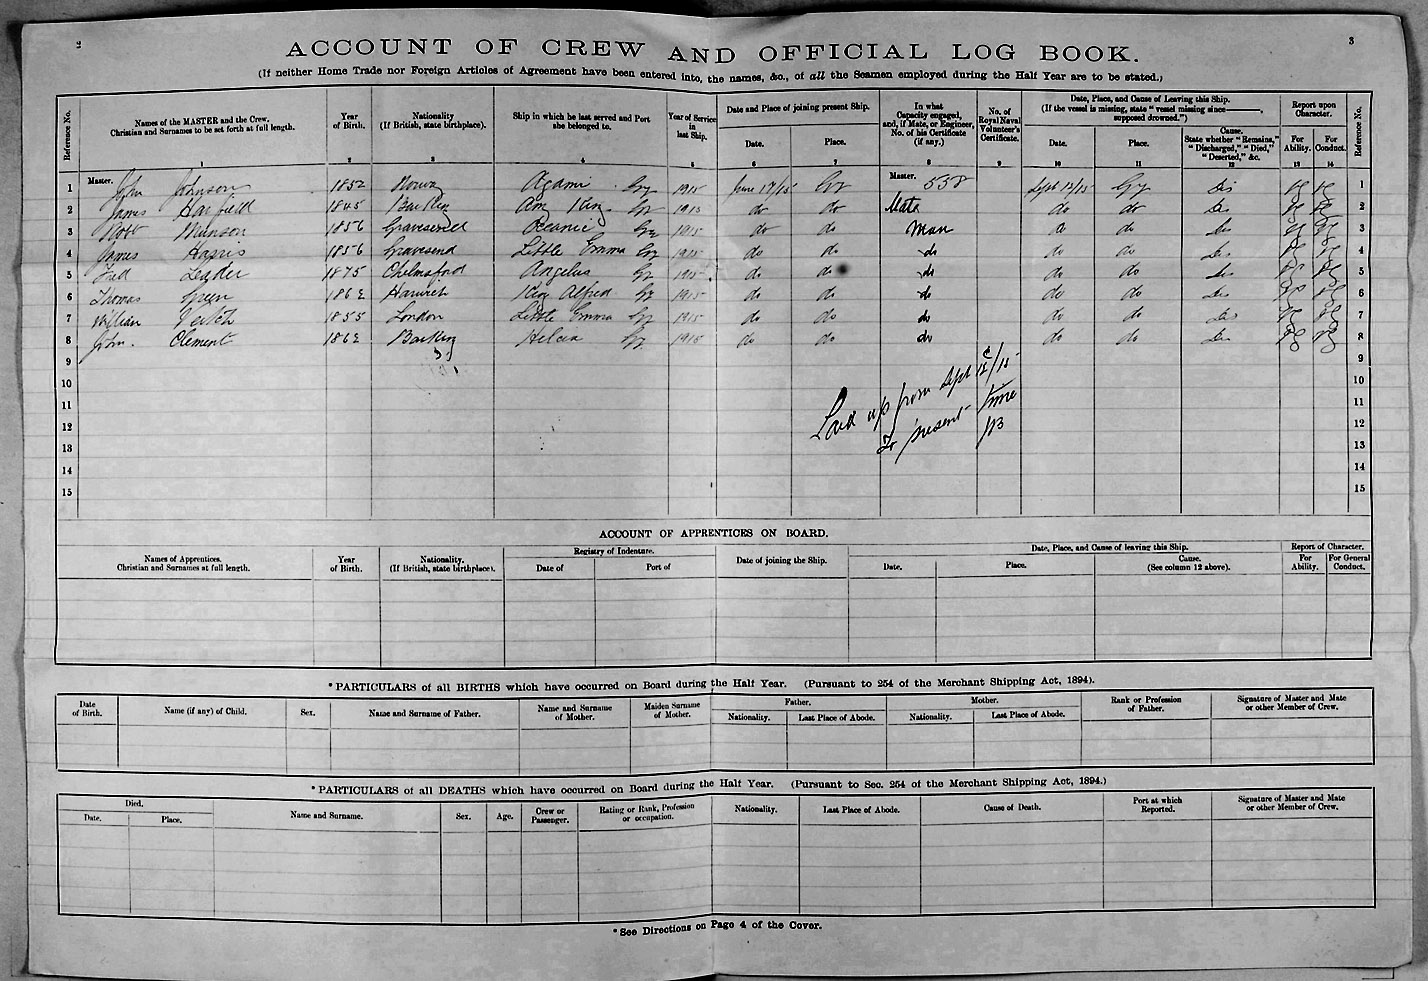 2
3
ACCOUNT OF CREW AND OFFICIAL LOG BOOK.
(If neither Home Trade nor Foreign Articles of Agreement have been entered into, the names, &c., of all the Seamen employed during the Half Year are to be stated.)
Reference No.
Names of the MASTER and the Crew.
Christian and Surnames to be set forth at full length.
1
Year of Birth.
2
Nationality
(If British, state birthplace).
3
Ship in which he last served and Port she belonged to.
4
Year of Service in last Ship.
5
Date and Place of joining present Ship.
Date.
6
Place.
7
In what Capacity engaged, and, if Mate, or Engineer, No. of his Certificate (if any.)
8
No. of Royal Naval Volunteer's Certificate.
9
Date, Place, and Cause of Leaving this Ship.
(If the vessel is missing, state "vessel missing since———, supposed drowned.")
Date.
10
Place.
11
Cause.
State whether "Remains," "Discharged," "Died," "Deserted," &c.
12
Report upon Character.
For Ability.
13
For Conduct.
14
Reference No.
1 Master. John Johnson 1852 Agami Gy 1915 June 17/15 Gy Master. 558 Sept 12/15 Gy Dis 1
2 James Barfield 1845 Barking Gy 1913 do do Mate do do Dis 2
3 Robt Munson 1856 Gravesend Oceanic Gy 1915 do do Man do do Dis 3
4 James Harris 1856 Gravesend Little Emma Gy 1915 do do do do do Dis 4
5 Fred Leader 1875 Chelmsford Angelus Gy 1915 do do do do do Dis 5
6 Thomas Green Harwich King Alfred Gy 1915 do do do do do Dis 6
7 William Veitch 1855 London Little Emma Gy 1915 do do do do do Dis 7
8 John Clement Barking Gy 1915 do do do do do Dis 8
9 9
10 10
11 11
12 12
13 13
14 14
15 15
Laid up from Sept
To present time
ACCOUNT OF APPRENTICES ON BOARD.
Names of Apprentices.
Christian and Surnames at full length.
Year of Birth.
Nationality.
(If British, state birthplace).
Registry of Indenture.
Date of
Port of
Date of joining the Ship.
Date, Place, and Cause of leaving this Ship.
Date.
Place.
Cause.
(See column 12 above).
Report of Character.
For Ability.
For General Conduct.
*PARTICULARS of all BIRTHS which have occurred on Board during the Half Year. (Pursuant to 254 of the Merchant Shipping Act, 1894).
Date of Birth.
Name (if any) of Child.
Sex.
Name and Surname of Father.
Name and Surname of Mother.
Maiden Surname of Mother.
Father.
Nationality.
Last Place of Abode.
Mother.
Nationality.
Last Place of Abode.
Rank or Profession of Father.
Signature of Master and Mate or other Member of Crew.
*PARTICULARS of all DEATHS which have occurred on Board during the Half Year. (Pursuant to Sec. 254 of the Merchant Shipping Act, 1894.)
Died.
Date.
Place.
Name and Surname.
Sex.
Age.
Crew or Passenger.
Rating or Rank, Profession or occupation.
Nationality.
Last Place of Abode.
Cause of Death.
Port at which Reported.
Signature of Master and Mate or other Member of Crew.
*See Directions on Page 4 of the Cover.